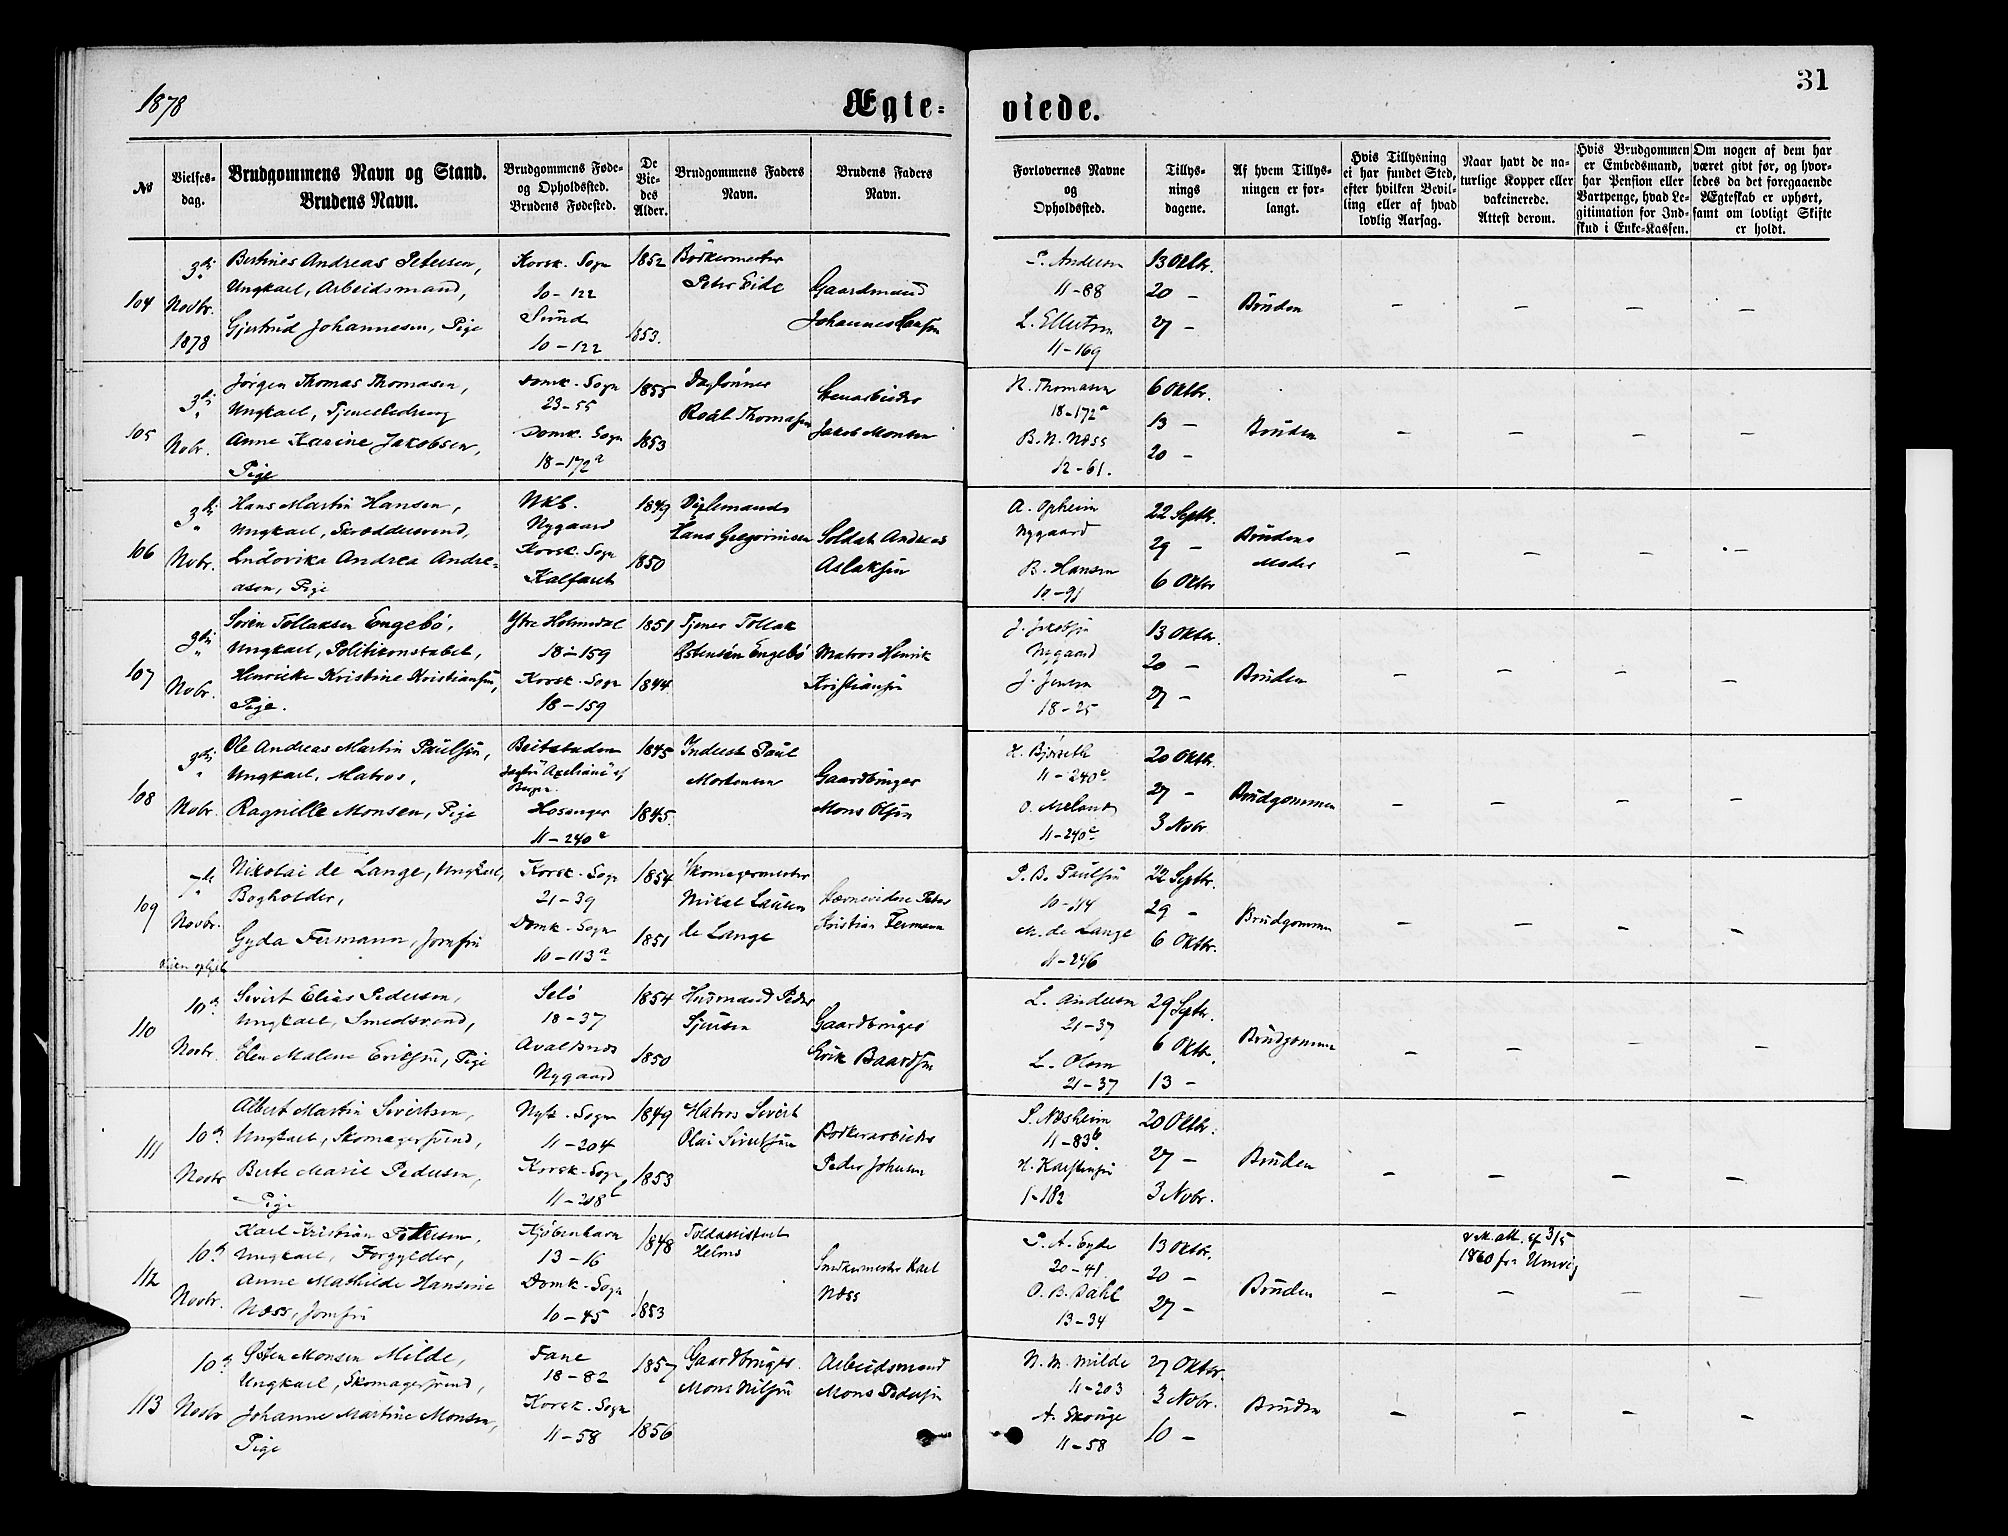 1878
Ægte=
viede.
31
No
Vielses-
dag.
Brudgommens Navn og Stand.
Brudens Navn.
Brudgommens Føde-
og Opholdssted.
Brudens Fødested.
De
Vie-
des
Alder.
Brudgommens Faders
Navn.
Brudens Faders
Navn.
Forlovernes Navne
og
Opholdssted.
Tillys-
nings
dagene.
Af hvem Tillys-
ningen er for-
langt.
Hvis Tillysning
ei har fundet Sted,
efter hvilken Bevil-
ling eller af hvad
lovlig Aarsag.
Naar havt de na-
turlige Kopper eller
vakcinerede.
Attest derom.
Hvis Brudgommen
er Embedsmand,
har Pension eller
Vartpenge, hvad Le-
gitimation for Ind-
skud i Enke-Kassen.
Om nogen af dem har
været givt før, og hvor-
ledes da det foregaaende
Ægteskab er ophørt,
samt om lovligt Skifte
er holdt.
104
3di
Novbr.
1878
Bertines Andreas Petersen,
Ungkarl, Arbeidsmand,
Gjertrud Johannesen, Pige
Korsk. Sogn
10-122
Sund
10-122
1852
1853.
Bødkermester
Peter Eide
Gaardmand
Johannes Hansen
P. Andersen
11-88
L. Ellertsen
11-169
13 Oktbr.
20 -
27 -
Bruden
- - - -
105
3di
Nobr.
Jørgen Thomas Thomasen,
Ungkarl, Tjenestedreng
Anne Karine Jakobsen,
Pige
Domk. Sogn
23-55
Domk. Sogn
18-172a
1855
1853
Daglønner
Roal Thomasen
Stenarbeider
Jakob Monsen
N. Thomasen
18-172a
B. N. Næss
12-61.
6 Oktbr.
13 -
20 -
Bruden
- - - -
106
3di
Nobr.
Hans Martin Hansen,
Ungkarl, Skræddersvend,
Ludovika Andrea Andre-
asen, Pige
Nkb.
Nygaard
Korsk. Sogn
Kalfaret
1849
1850
Hans Gregoriusen
Soldat Andreas
Aslaksen
A. Opheim
Nygaard
B. Hansen
10-91
22 Septbr.
29 -
6 Oktbr
Brudens
Moder
- - - -
107
3di
Nobr.
Søren Tollaksen Engebø,
Ungkarl, Politikonstabel,
Henrikke Kristine Kristiansen,
Pige.
Ytre Holmedal
18-159
Korsk. Sogn
18-159
1851
1844
Tjener Tollak
Østensen Engebø
Matros Henrik
Kristiansen
J. Jakobsen
Nygaard
J. Jensen
18-25
13 Oktbr.
20 -
27 -
Bruden
- - - -
108
3di
Nobr.
Ole Andreas Martin Paulsen,
Ungkarl, Matros,
Ragnille Monsen, Pige
Beitstaden
Hosanger
11-240e
1845
1845.
Inderst Paul
Mortensen
Gaardbruger
Mons Olsen
H. Bjørseth
11-240e
O. Meland
11-240e
20 Oktbr.
27 -
3 Nobr
Brudgommen
- - - -
109
7de
Novbr.
Nikolai de Lange, Ungkarl,
Bogholder,
Gyda Fermann, Jomfru
Korsk. Sogn
21-39
Domk. Sogn
10-113a
1854
1851
Skomagermester
Mikal Lausen
de Lange
Peter
Kristian Fermann
P. B. Paulsen
10-114
M. de Lange
11-246
22 Septbr.
29 -
6 Oktbr.
Brudgommen
- - - -
110
10de
Novbr.
Sivert Elias Pedersen,
Ungkarl, Smedsvend,
Elen Malene Eriksen, Pige
Selø
18-37
Avaldsnes
Nygaard
1854
1850
Husmand Peder
Sjursen
Gaardbruger
Erik Baardsen
L. Andersen
21-37
L. Olsen
21-37
29 Septbr.
6 Oktbr.
13 -
Brudgommen
- - - -
111
10de
Novbr
Albert Martin Sivertsen,
Ungkarl, Skomagersvend,
Berte Marie Pedersen,
Pige
Nyk. Sogn
11-204
Korsk. Sogn
11-218b
1849
1853
Matros Sivert
Olai Sivertsen
Bødkerarbeider
Peder Johnsen
S. Næsheim
11-83b
H. Karstensen
1-182
20 Oktbr.
27 -
3 Nobr.
Bruden
- - - -
112
10de
Novbr.
Karl Kristian Petersen,
Ungkarl, Forgylder,
Anne Mathilde Hansine
Næss, Jomfru
Kjøbenhavn
13-16
Domk. Sogn
10-45
1848
1853
Toldassistent
Helms
Snedkermester Karl
Næss
P. A. Eyde
20-41.
O. B. Dahl
13-34
13 Oktbr.
20 -
27 -
Bruden
-
att. af 3/5
1860 fra
- -
113
10de
Novbr
Østen Monsen Milde,
Ungkarl, Skomagersvend,
Johanne Martine Monsen,
Pige
Fane
18-82
Korsk. Sogn
11-58
1857
1856
Gaardbruger
Mons Nilsen
Arbeidsmand
Mons Pedersen
N. M. Milde
11-203
A. Skouge
11-58
27 Oktbr.
3 Nobr.
10 -
Bruden
- - - -